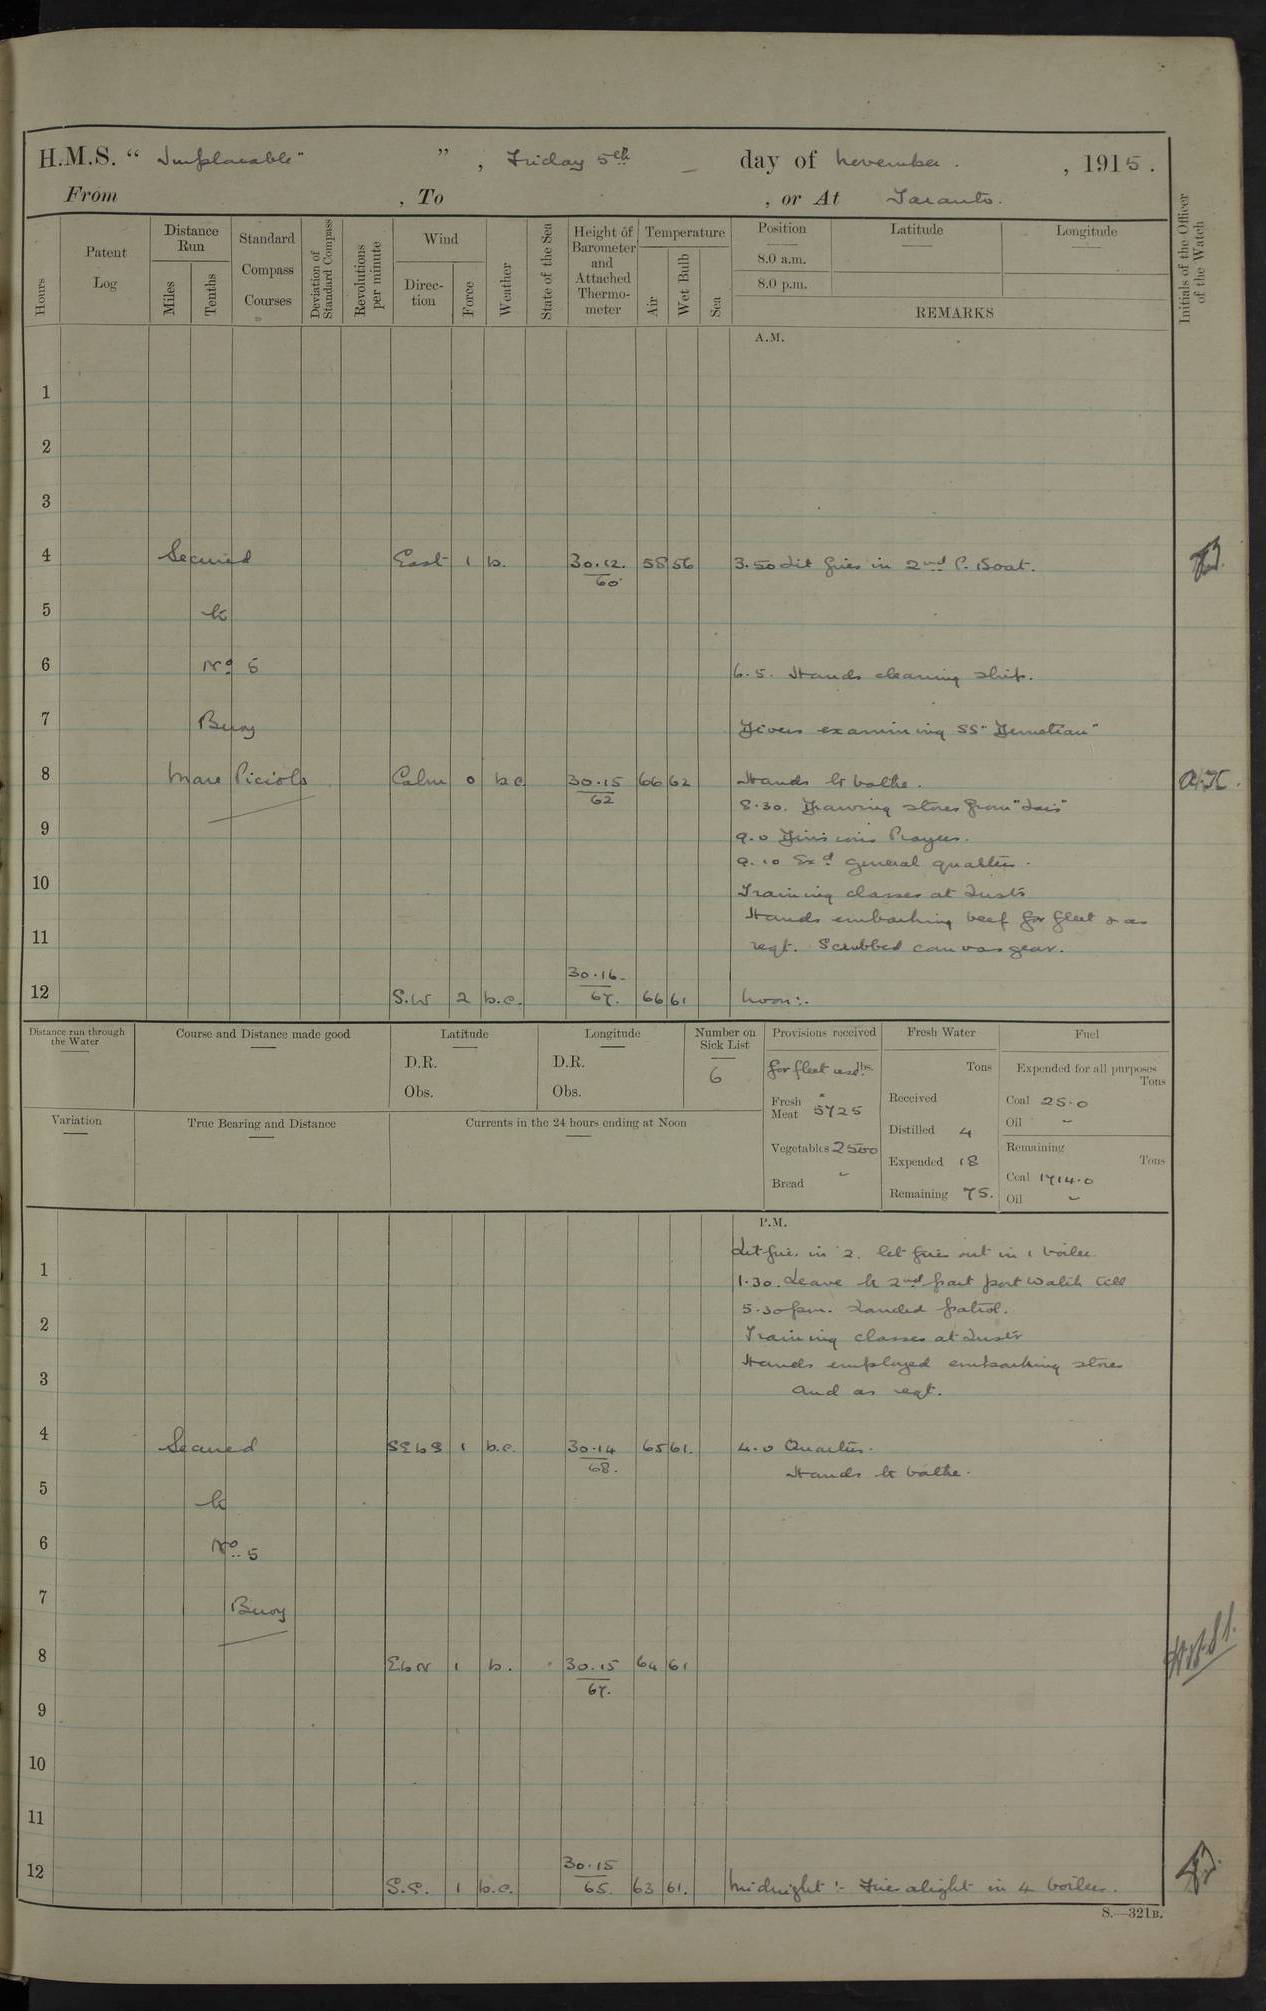 H.M.S. “ Implacable” ” , Friday 5th day of November . , 1915 .
From , To , or At Taranto.
Hours
Patent Log
Distance Run
Miles
Tenths
Standard Compass Courses
Deviation of Standard Compass
Revolutions per minute
Wind
Direction
Force
Weather
State of the Sea
Height of Barometer and Attached Thermometer
Temperature
Air
Wet Bulb
Sea
Position
8.0 a.m.
8.0 p.m.
Latitude
Longitude
REMARKS
Initials of the Officer of the Watch
A.M.
1
2
3
4 Secured East 1 b. 30.12. 60 58 56 3.50 Lit fires in 2nd P. Boat.
5 to
6 No 5 6.5. Hands cleaning ship.
7 Buoy Divers examining SS "Demetian"
8 Mare Piciolo Calm 0 b.c. 30.15 62 66 62 Hands to bathe.
8.30. Drawing stores from
9 9.0 Divisions Prayers.
9.10 Exd general quarters.
10 Training classes at Instr
Hands embarking beef for fleet & as
11 reqt. Scrubbed canvas gear.
12 S.W 2 b.c. 30.16. 67. 66 61 Noon:.
Distance run through the Water
Course and Distance made good
Latitude
D.R.
Obs.
Longitude
D.R.
Obs.
Number on Sick List
6
Provisions received
for fleet lbs.
Fresh Meat 5725
Vegetables 2500
Bread -
Fresh Water
Tons
Received
Distilled 4
Expended 18
Remaining 75.
Fuel
Expended for all purposes
Tons
Coal 25.0
Oil -
Remaining
Tons
Coal 1714.0
Oil -
Variation
True Bearing and Distance
Currents in the 24 hours ending at Noon
P.M.
Lit fires in 2. let fires out in 1 boiler
1 1.30. Leave to 2nd part port watch till
5.30pm. Landed patrol.
2 Training classes at Instr
Hands employed embarking stores
3 and as reqt.
4 Secured SEbS 1 b.c. 30.14 68. 65 61. 4.0 Quarters.
Hands to bathe.
5 to
6 No 5
7 Buoy
8 EbN 1 b. 30.15 67. 64 61
9
10
11
12 S.E. 1 b.c. 30.15 65. 63 61. Midnight :- Fires alight in 4 boilers.
S.—321B.